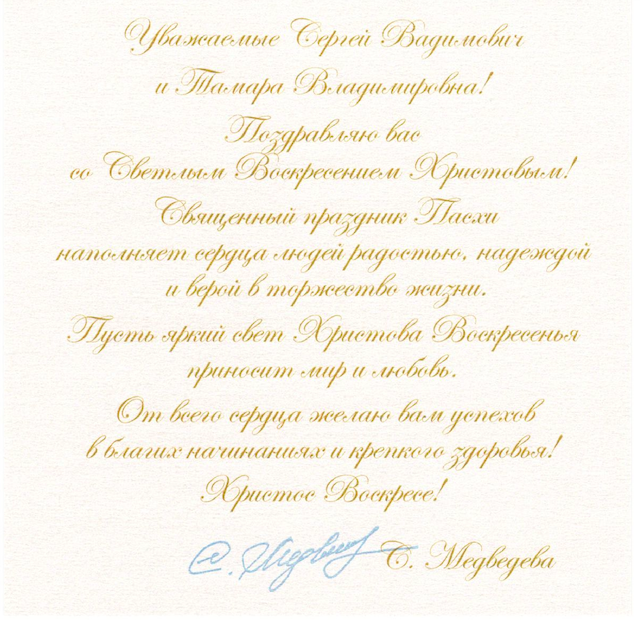 Уважаемые Сергей Вадимович
и Тамара Владимировна!
Поздравляю вас
со Светлым Воскресением Христовым!
Священный праздник Пасхи
наполняет сердца людей радостью, надеждой
и верой в торжество жизни.
Пусть яркий свет Христова Воскресенья
приносит мир и любовь.
От всего сердца желаю вам успехов
в благих начинаниях и крепкого здоровья!
Христос Воскресе!
С. Медведева